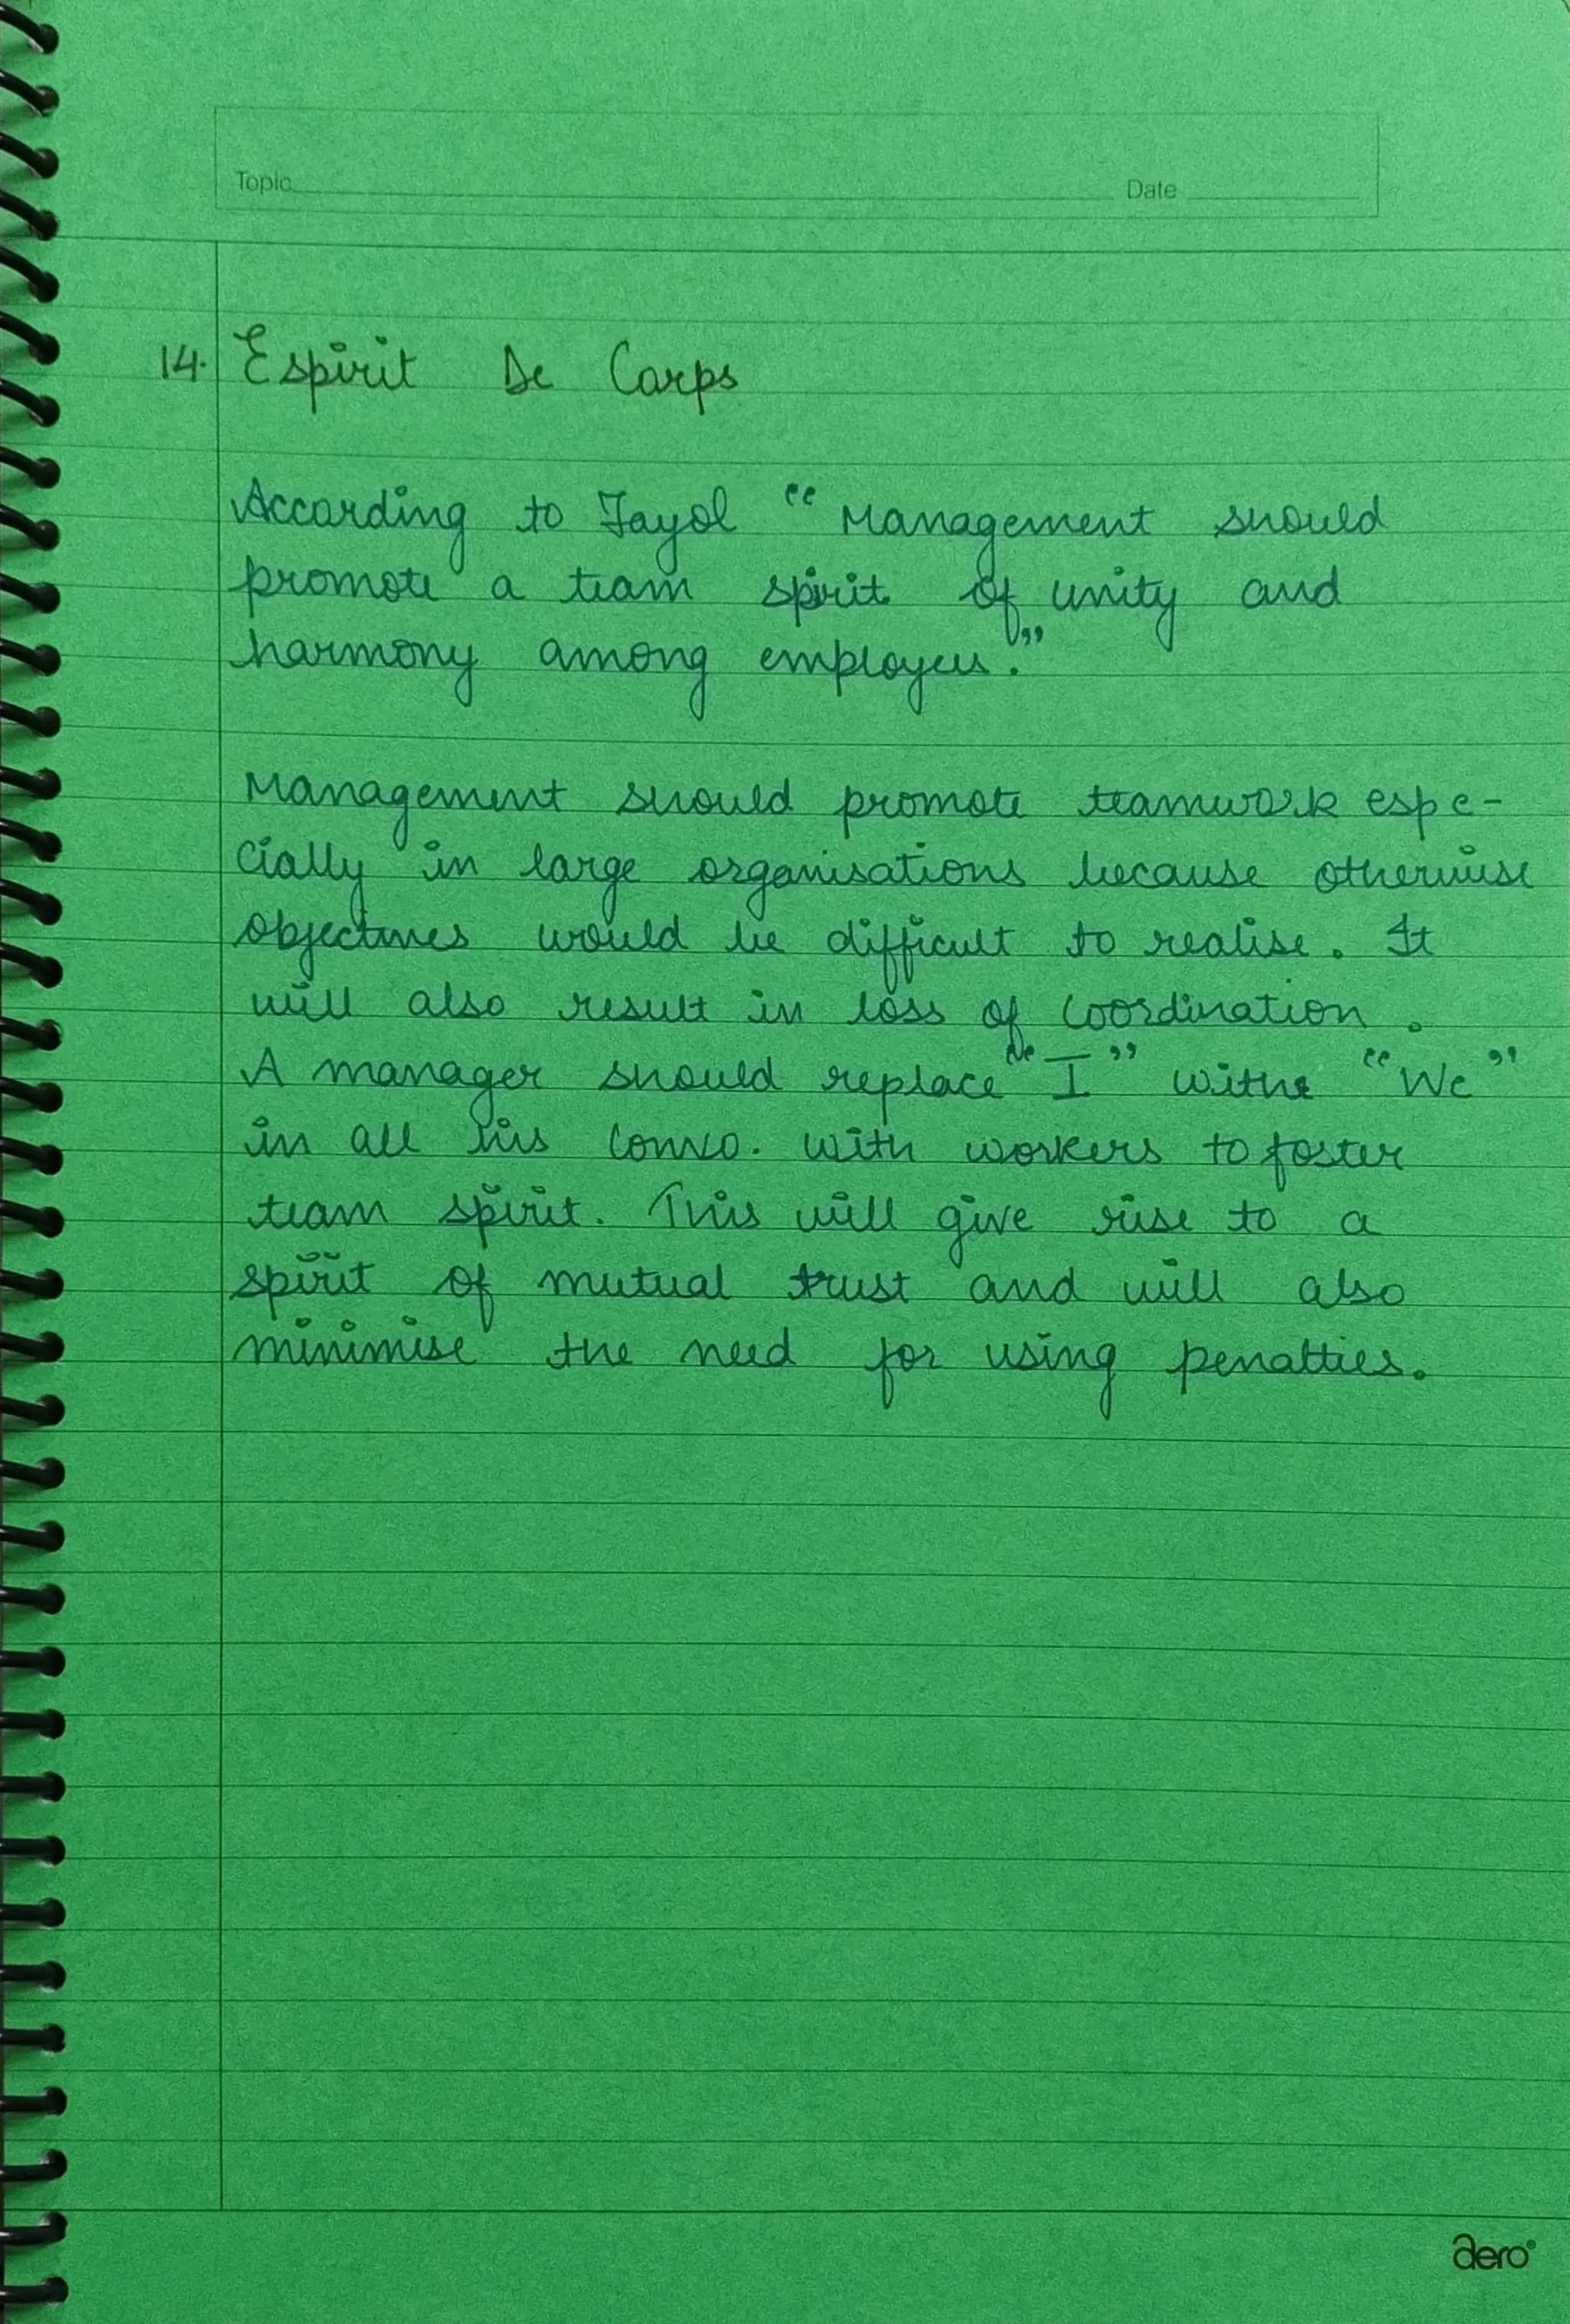 Topic Date
14. Espirit De Corps
According to Fayol "Management should
promote a team spirit of unity and
harmony among employees."
Management should promote teamwork espe-
cially in large organisations because otherwise
objectives would be difficult to realise. It
will also result in loss of coordination.
A manager should replace "I" with "We"
in all his convo. with workers to foster
team spirit. This will give rise to a
spirit of mutual trust and will also
minimise the need for using penalties.
aero